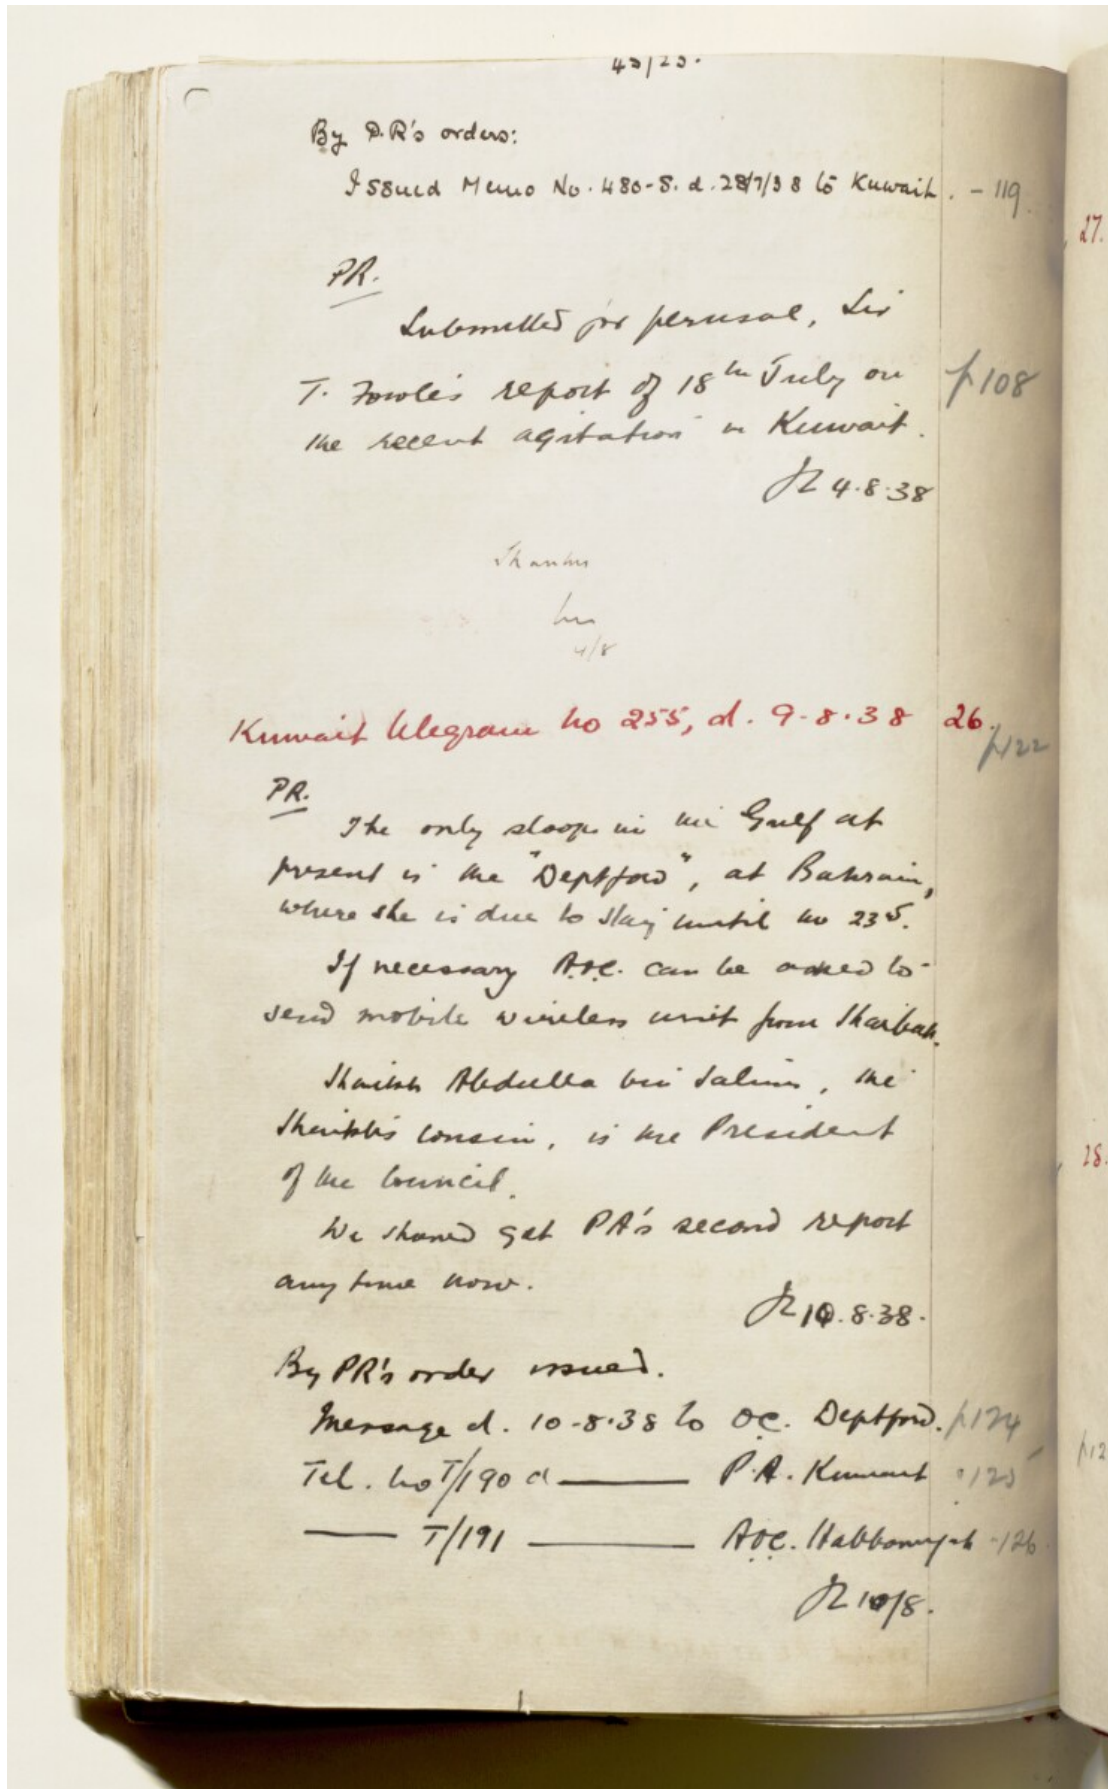 43/23.
By P.R's orders:
Issued Memo No. 480-S. d. 28/7/38 to Kuwait. - 119.
27.
PR.
Submitted for perusal, Sir
T. Fowle's report of 18th July on p108
the recent agitation in Kuwait.
4.8.38
Thanks
4/8
Kuwait telegram No 255, d. 9.8.38 26.
p122
PR.
The only sloop in the Gulf at
present is the "Deptford", at Bahrain,
where she is due to stay until the 23rd.
If necessary A.O.C. can be asked to
send mobile wireless unit from Shaibah.
Shaikh Abdulla bin Salim, the
Shaikh's cousin, is the President
of the Council.
28.
We should get PA's second report
any time now.
10.8.38.
By PR's order issued.
Message d. 10-8-38 to O.C. Deptford. p124
Tel. No T/190 d —— P.A. Kuwait 125
—— T/191 —— A.O.C. Habbaniyah - 126
10/8.